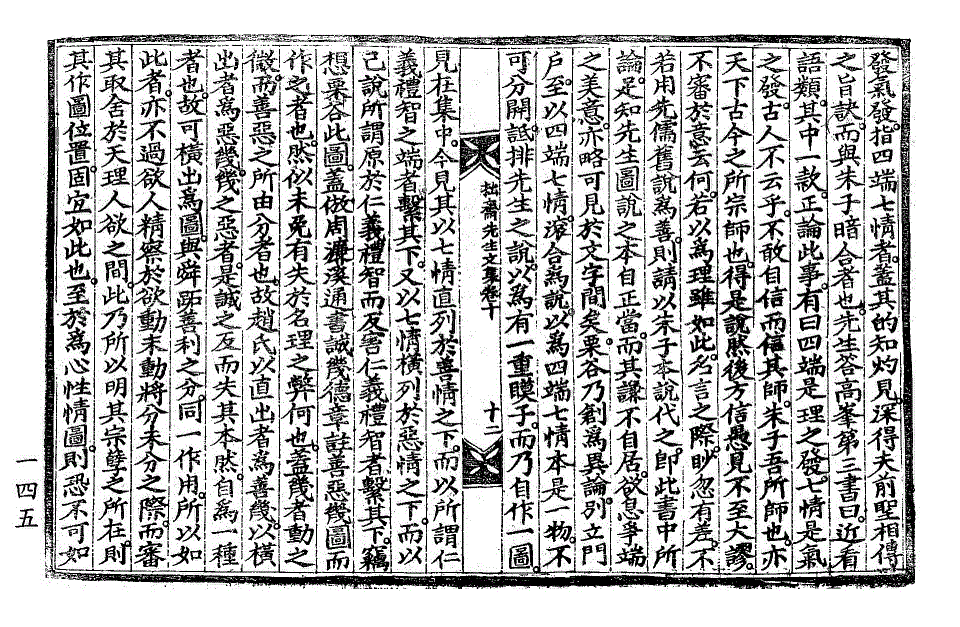 發氣發指四端七情者。蓋其的知灼見。深得夫前聖相傳
之旨訣。而與朱子暗合者也。先生答高峯第三書曰。近看
語類。其中一款。正論此事。有曰四端是理之發。七情是氣
之發。古人不云乎。不敢自信而信其師。朱子吾所師也。亦
天下古今之所宗師也。得是說然後方信愚見不至大謬。
不審於意云何。若以爲理雖如此。名言之際。眇忽有差。不
若用先儒舊說爲善。則請以朱子本說代之。卽此書中所
論。是知先生圖說之本自正當。而其謙不自居。欲息爭端
之美意。亦略可見於文字間矣。栗谷乃創爲異論。列立門
戶。至以四端七情滚合爲說。以爲四端七情本是一物。不
可分開。詆排先生之說。以爲有一重膜子。而乃自作一圖。
拙齋先生文集卷十
十二
見在集中。今見其以七情直列於善情之下。而以所謂仁
義禮智之端者繫其下。又以七情橫列於惡情之下。而以
己說所謂原於仁義禮智而反害仁義禮智者繫其下。竊
想栗谷此圖。蓋倣周濂溪通書誠幾德章註善惡幾圖而
作之者也。然似未免有失於名理之弊何也。蓋幾者動之
微。而善惡之所由分者也。故趙氏以直出者爲善幾。以橫
出者爲惡幾。幾之惡者。是誠之反而失其本然。自爲一種
者也。故可橫出爲圖。與舜跖善利之分。同一作用。所以如
此者。亦不過欲人精察於欲動未動將分未分之際。而審
其取舍於天理人欲之間。此乃所以明其宗孽之所在。則
其作圖位置。固宜如此也。至於爲心性情圖。則恐不可如
一四五